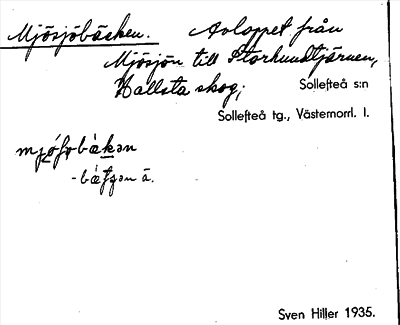 Mjösjöbäcken. Avloppet från
Mjösjön till Storhundtjärnen,
Hallsta skog; Sollefteå s:n
Sollefteå tg., Västernorrl. l.
Sven Hiller 1935.